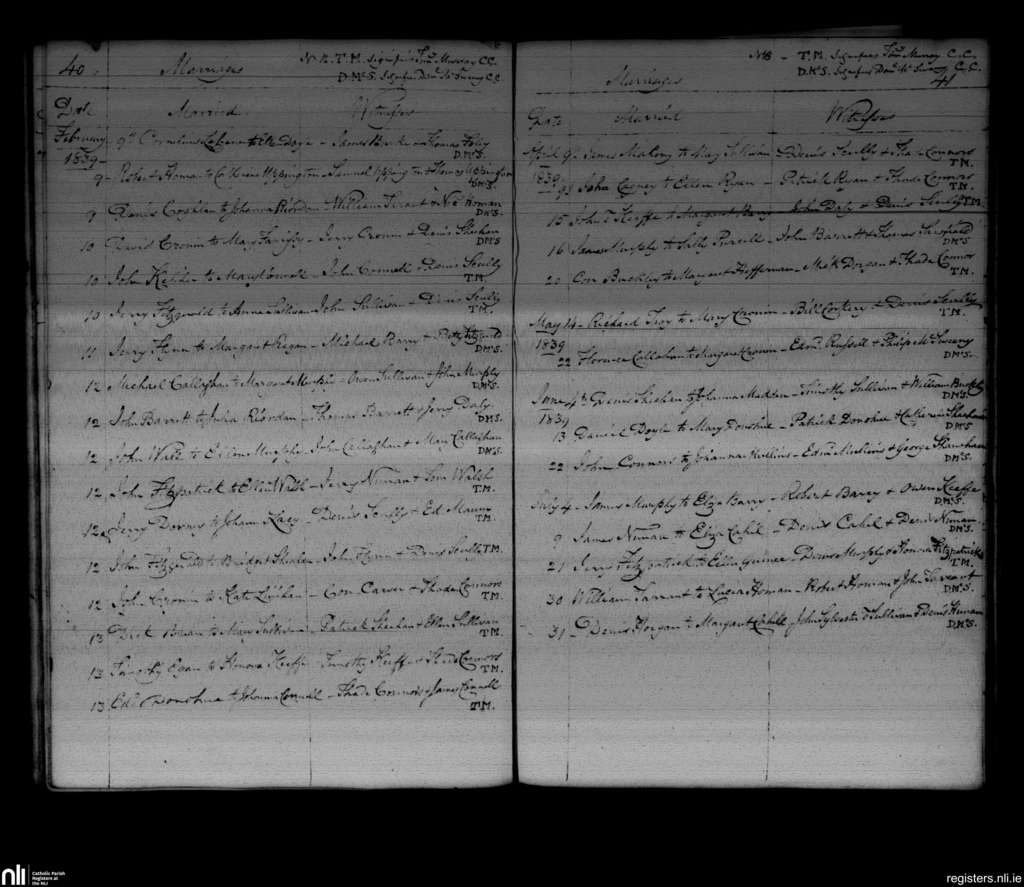 40. Marriages N.B. T.M. signifies Thos Murray C.C.
D.McS. signifies Danl McSwiney C.C.
Date Married Witnesses
February 9th Cornelius to - James & Thomas Foley
D.McS.
1839
9 - Homan to Catherine Uppington - Samuel Uppington & Thomas Uppington
D.McS.
9 Denis Coghlan to Johanna Riordan - William Tarrant & Homan
D.McS.
10 David Cronin to Mary - Jerry Cronin & Denis Sheehan
D.McS.
10 John to Mary Connell - John Connell & Denis Scully
T.M.
10 Jerry Fitzgerald to Anne Sullivan John Sullivan & Denis Scully
T.M.
11 Jerry Flynn to Margaret Regan - Michael Barry &
D.McS.
12 Michael Callaghan to Margaret Murphy - Owen Sullivan & John Murphy
D.McS.
12 John Barrett to Riordan - Thomas Barrett & Jerry Daly
D.McS.
12 John Wall to Ellen Murphy - John Callaghan & Mary Callaghan
D.McS.
12 John Fitzpatrick to Ellen Walsh - Jerry Nunan & Walsh
T.M.
12 Jerry to - Denis Scully & Ed
T.M.
12 John Fitzgerald to Bridget Sheehan - John Flynn & Denis Scully T.M.
12 John Cronin to Kate - Con Carver & Thade Connors
T.M.
13 to Mary Sullivan - Patrick Sheehan & Ellen Sullivan
T.M.
13 Timothy Egan to Honora Keeffe - Timothy Keeffe & Thade Connors
T.M.
13 Ed Donohue to Johanna Connell - Thade Connors & James Connell
T.M.
N.B. - T.M. signifies Thos Murray C.C.
D.McS. signifies Danl McSwiney C.C.
Marriages 41
Date Married Witnesses
April 9 James Mahony to Mary Sullivan - Denis Scully & Thade Connors
T.M.
1839 John to Ellen Ryan - Patrick Ryan & Thade Connors
T.M.
15 John Keeffe to Margaret Barry - John Daly & Denis Scully T.M.
16 James Murphy to Purcell - John Barrett & Thomas
D.McS
20 Con Buckley to Margaret Heffernan - Mick Dorgan & Thade Connor
T.M.
May 14 - Richard Troy to Mary Cronin - Bill & Denis Scully
T.M.
1839
22 Florence Callaghan to Margaret Cronin - Edmd Russell & Philip McSweeny
D.McS.
June 4th Denis Sheehan to Johanna Madden - Timothy Sullivan & William Buckley
D.McS.
1839
13 Daniel Doyle to Mary Donohue - Patrick Donohue & Catherine Sheehan
D.McS
22 John Connors to Johanna Mullins - Edmd Mullins & George
D.McS.
July 4 - James Murphy to Eliza Barry - Robert Barry & Owen Keeffe
D.McS.
9 James Nunan to Eliza Cahil - Denis Cahil & Denis Nunan
D.McS.
21 Jerry Fitzpatrick to Ellen Guinee - Denis Murphy & Honora Fitzpatrick
T.M.
30 William Tarrant to Lucia Homan - Robert Homan & John Tarrant
D.McS.
31 - Denis Horgan to Margaret Cahill - John Sylvester O'Sullivan & Denis Nunan
D.McS.
nli
Catholic Parish
Registers at
the NLI
registers.nli.ie